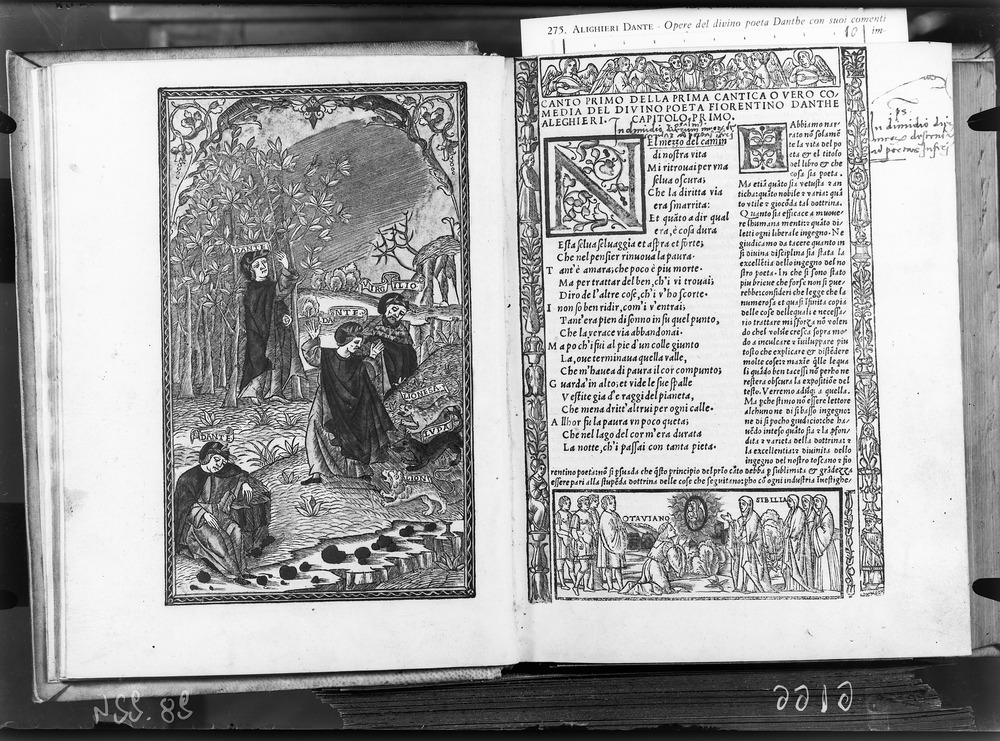 275. ALIGHIERI DANTE - Opere del divino poeta Danthe con suoi comenti
10 im-
DANTE
VIRGILIO
DANTE
LIONEZZA
LVPA
LIONE
DANTE
CANTO PRIMO DELLA PRIMA CANTICA O VERO CO-
MEDIA DEL DIVINO POETA FIORENTINO DANTHE
ALEGHIERI. CAPITOLO, PRIMO.
N El mezzo del camin
di nostra vita
Mi ritrouai per vna
selua oscura;
Che la diritta via
era smarrita:
Et quãto a dir qual
era, è cosa dura
Esta selua seluaggia et aspra et forte;
Che nel pensier rinuoua la paura.
T ant'è amara; che poco è piu morte.
Ma per trattar del ben, ch'i vi trouai;
Diro de l'altre cose, ch'i v'ho scorte.
I non so ben ridir, com'i v'entrai;
Tant'era pien di sonno in su quel punto,
Che la verace via abbandonai.
M a po ch'i fui al pie d'un colle giunto
La, oue terminaua quella valle,
Che m'hauea di paura il cor compunto;
G uarda'in alto; et vide le sue spalle
Vestite gia d'e raggi del pianeta,
Che mena dritt'altrui per ogni calle.
A llhor fu la paura vn poco queta;
Che nel lago del cor m'era durata
La notte, ch'i passai con tanta pieta.
H Abbiamo nar
rato nõ solamẽ
te la vita del po
eta & el titolo
del libro & che
cosa sia poeta.
Ma etiã quãto sia vetusta & an
ticha: quãto nobile & varia: quã
to vtile & giocõda tal dottrina.
Quanto sia efficace a muoue
re lhumana menti: & quãto di
letti ogni liberale ingegno. Ne
giudicamo da tacere quanto in
si diuina disciplina sia stata la
excellẽtia dello ingegno del no
stro poeta. In che si sono stato
piu brieue che forse non si pue
rebbe: consideri che legge che la
numerosa et quasi ifinita copia
delle cose delle quali è necessa-
rio trattare mi sforza nõ volen
do chel volũe cresca sopra mo-
do a inculcare & iuiluppare piu
tosto che explicare & distẽdere
molte cose: & maxie q̃lle le qua
li quãdo ben tacessi nõ perho ne
restera obscura la expositiõe del
testo. Verremo adũq; a quella.
Ma pche stimo nõ essere lettore
alchuno ne di si basso ingegno:
ne di si pocho giudicio: che ha-
uẽdo inteso quãto sia & la pfon
dita & varieta della dottrina: &
la excellentia: & diuinita dello
ingegno del nostro toscano & fio
rentino poeta: nõ si psuada che q̃sto principio del prĩo cãto debba p sublimita & grãdezza
essere pari alla stupẽda dottrina delle cose che seguitano: pho cõ ogni industria inuestighe-
OTAVIANO
SIBILIA
28.224
6616